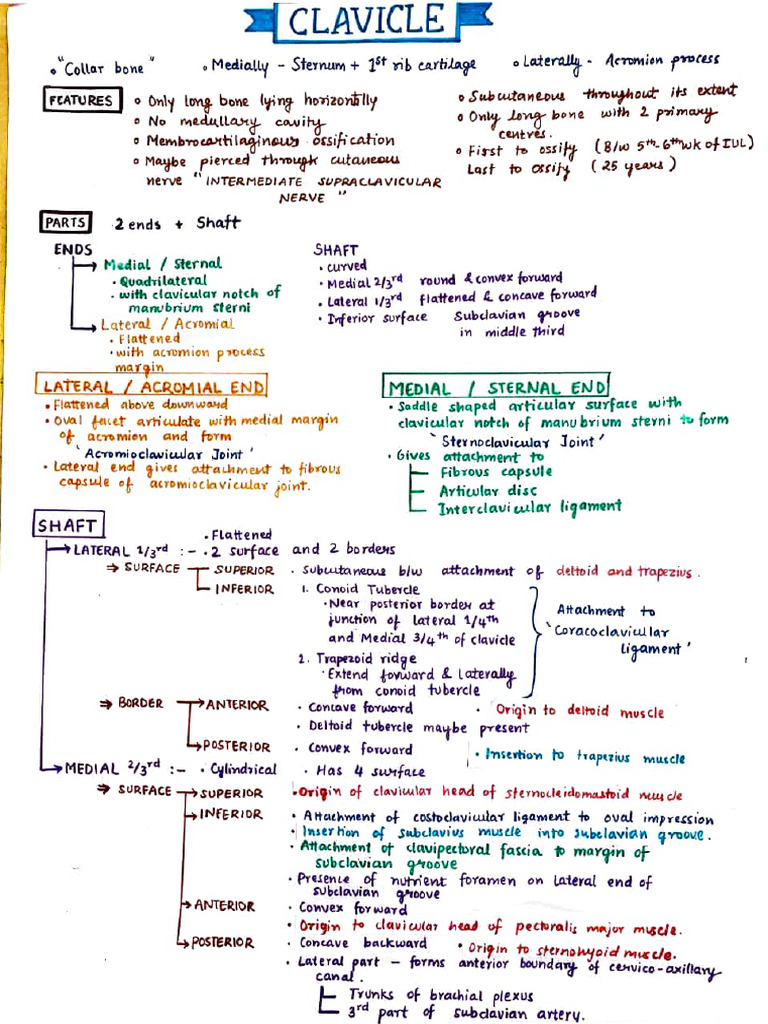 CLAVICLE
• "Collar bone" • Medially - Sternum + 1st rib cartilage • Laterally - Acromion process
FEATURES
• Only long bone lying horizontally
• No medullary cavity
• Membrocartilaginous ossification
• Maybe pierced through cutaneous
nerve "INTERMEDIATE SUPRACLAVICULAR
NERVE"
• Subcutaneous throughout its extent
• Only long bone with 2 primary
centres.
• First to ossify (B/w 5th-6th wk of IUL)
Last to ossify (25 years)
PARTS 2 ends + Shaft
ENDS
Medial / Sternal
• Quadrilateral
• with clavicular notch of
manubrium sterni
Lateral / Acromial
• Flattened
• with acromion process
margin
SHAFT
• curved
• Medial 2/3rd round & convex forward
• Lateral 1/3rd flattened & concave forward
• Inferior surface Subclavian groove
in middle third
LATERAL / ACROMIAL END
• Flattened above downward
• Oval facet articulate with medial margin
of acromion and form
'Acromioclavicular Joint'
• Lateral end gives attachment to fibrous
capsule of acromioclavicular joint.
MEDIAL / STERNAL END
• Saddle shaped articular surface with
clavicular notch of manubrium sterni to form
'Sternoclavicular Joint'
• Gives attachment to
Fibrous capsule
Articular disc
Interclavicular ligament
SHAFT
• Flattened
→ LATERAL 1/3rd :- • 2 surface and 2 borders
⇒ SURFACE SUPERIOR • Subcutaneous b/w attachment of deltoid and trapezius.
INFERIOR 1. Conoid Tubercle
• Near posterior border at
junction of lateral 1/4th
and Medial 3/4th of clavicle
2. Trapezoid ridge
• Extend forward & laterally
from conoid tubercle
Attachment to
'Coracoclavicular
ligament'
⇒ BORDER → ANTERIOR • Concave forward • Origin to deltoid muscle
• Deltoid tubercle maybe present
→ POSTERIOR • Convex forward • Insertion to trapezius muscle
→ MEDIAL 2/3rd :- • Cylindrical • Has 4 surface
⇒ SURFACE → SUPERIOR • Origin of clavicular head of sternocleidomastoid muscle
→ INFERIOR • Attachment of costoclavicular ligament to oval impression
• Insertion of subclavius muscle into subclavian groove.
• Attachment of clavipectoral fascia to margin of
subclavian groove
• Presence of nutrient foramen on lateral end of
subclavian groove
→ ANTERIOR • Convex forward
• Origin to clavicular head of pectoralis major muscle.
→ POSTERIOR • Concave backward • Origin to sternohyoid muscle.
• Lateral part - forms anterior boundary of cervico-axillary
canal.
Trunks of brachial plexus
3rd part of subclavian artery.